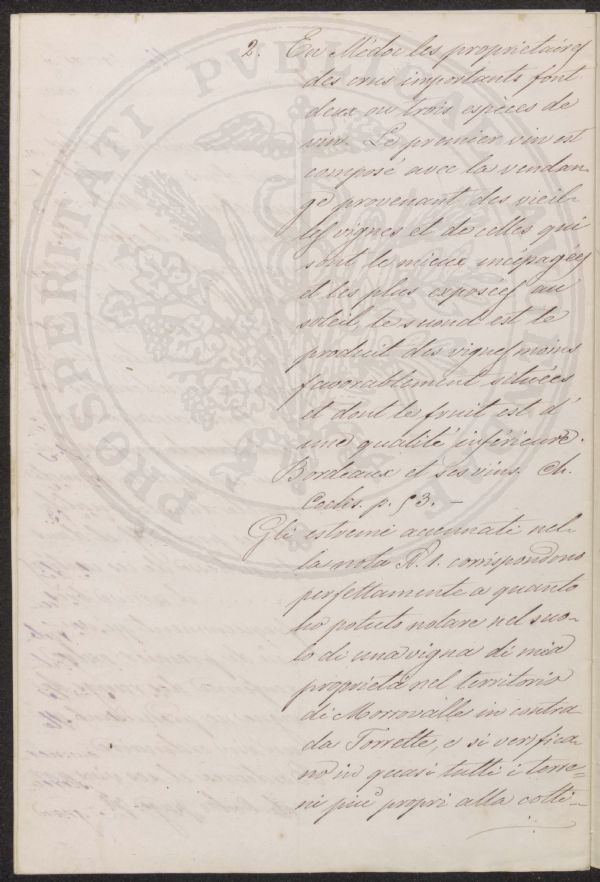 2. En Médoc les proprietaires
des crus importants font
deux ou trois espèces de
vin. Le premier vin est
composé avec la vendan-
ge provenant des vieil-
les vignes et de celles qui
sont le mieux encépagées
et les plus exposées au
soleil, le second est le
produit des vignes moins
favorablement situées
et dont le fruit est d'
une qualité inférieure.
Bordeaux et ses vins. Ch.
Cocks. p. 53. -
Gli estremi accennati nel-
la nota N. 1. corrispondono
perfettamente a quanto
ho potuto notare nel suo-
lo di una vigna di mia
proprietà nel territorio
di Morrovalle in contra
da Torrette, e si verifica-
no in quasi tutti i terre=
ni più propri alla colti-
PROSPERITATI PVBLICAE